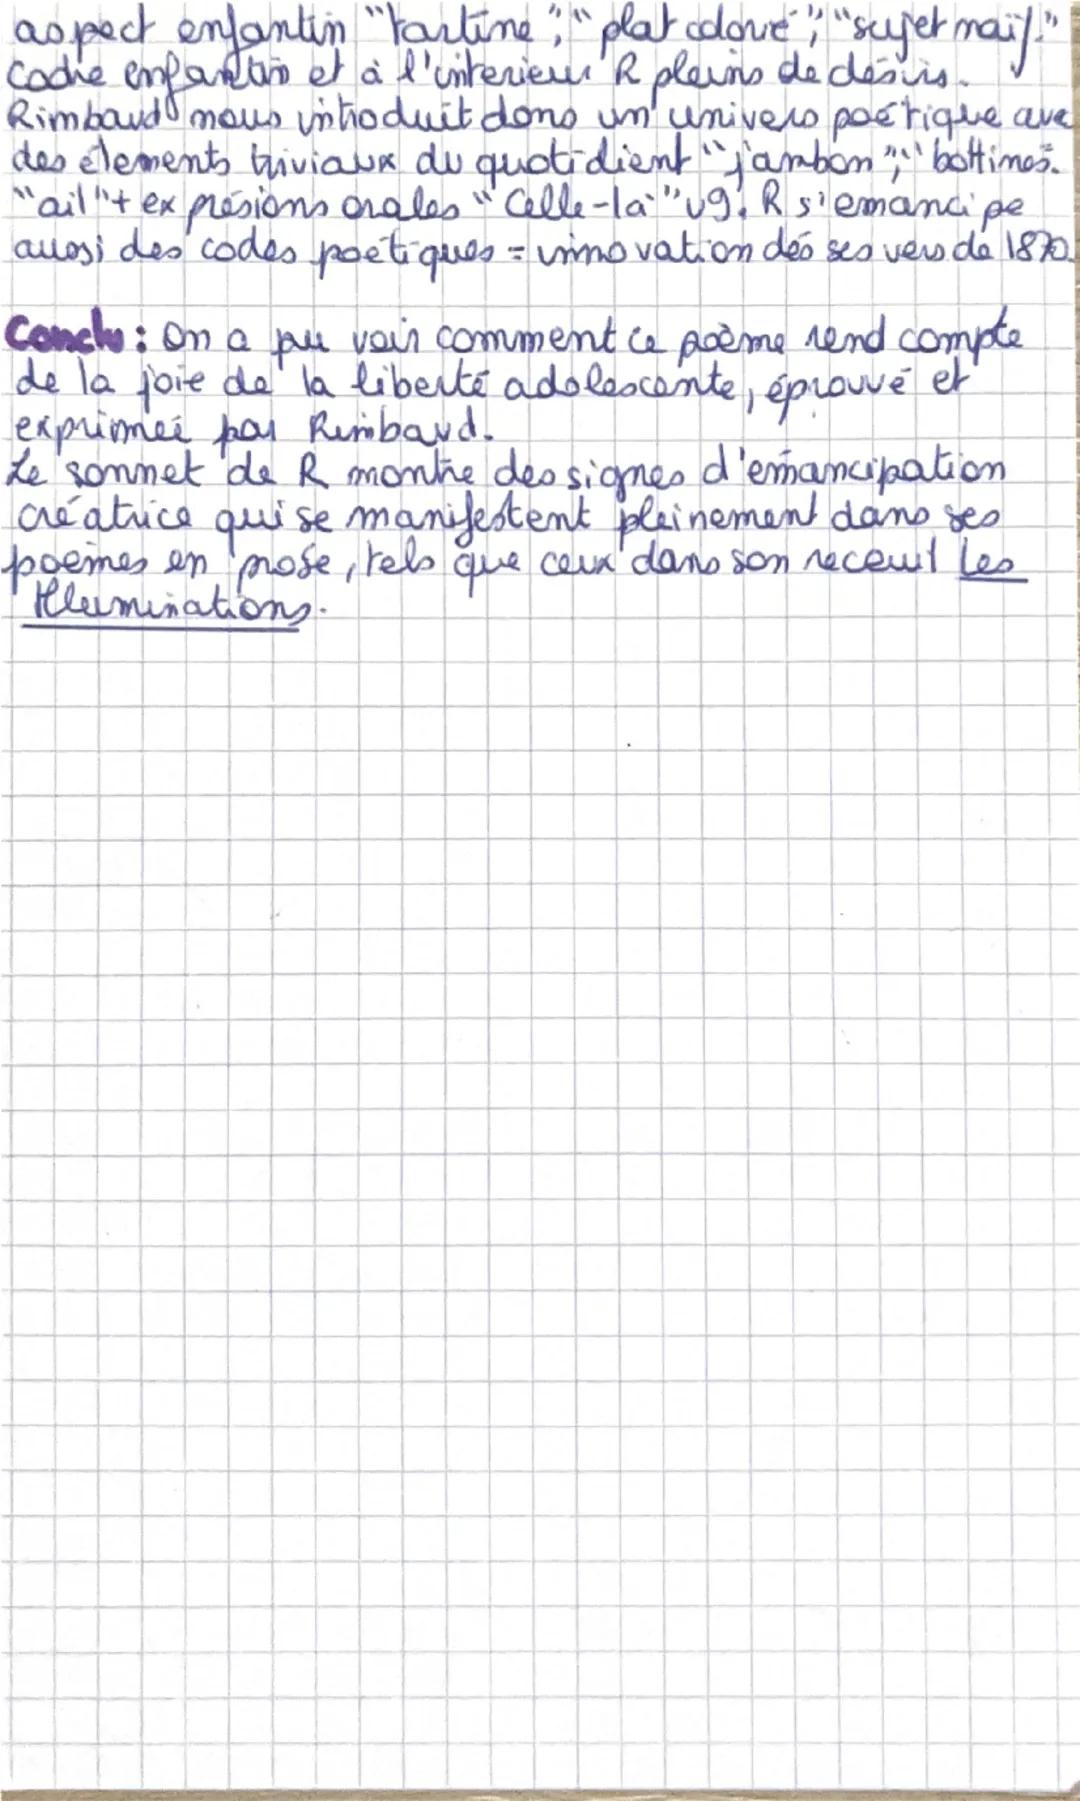 aspect enfantin "tartine", "plat coloré", "sujet naïf."
Cadre enfantin et à l'interieur R pleins de désirs.
Rimbaud nous introduit dans un univers poétique ave
des élements triviaux du quotidient "jambon", "bottimes".
"ail" + expresions orales "Celle-là" v9. R s'emancipe
aussi des codes poétiques = innovation dés ses vers de 1870.
Conclu : On a pu voir comment ce poème rend compte
de la joie de la liberté adolescente, éprouvé et
exprimeé par Rimbaud.
Le sonnet de R montre des signes d'émancipation
créatrice qui se manifestent pleinement dans ses
poèmes en prose, tels que ceux dans son receuil Les
Illuminations.